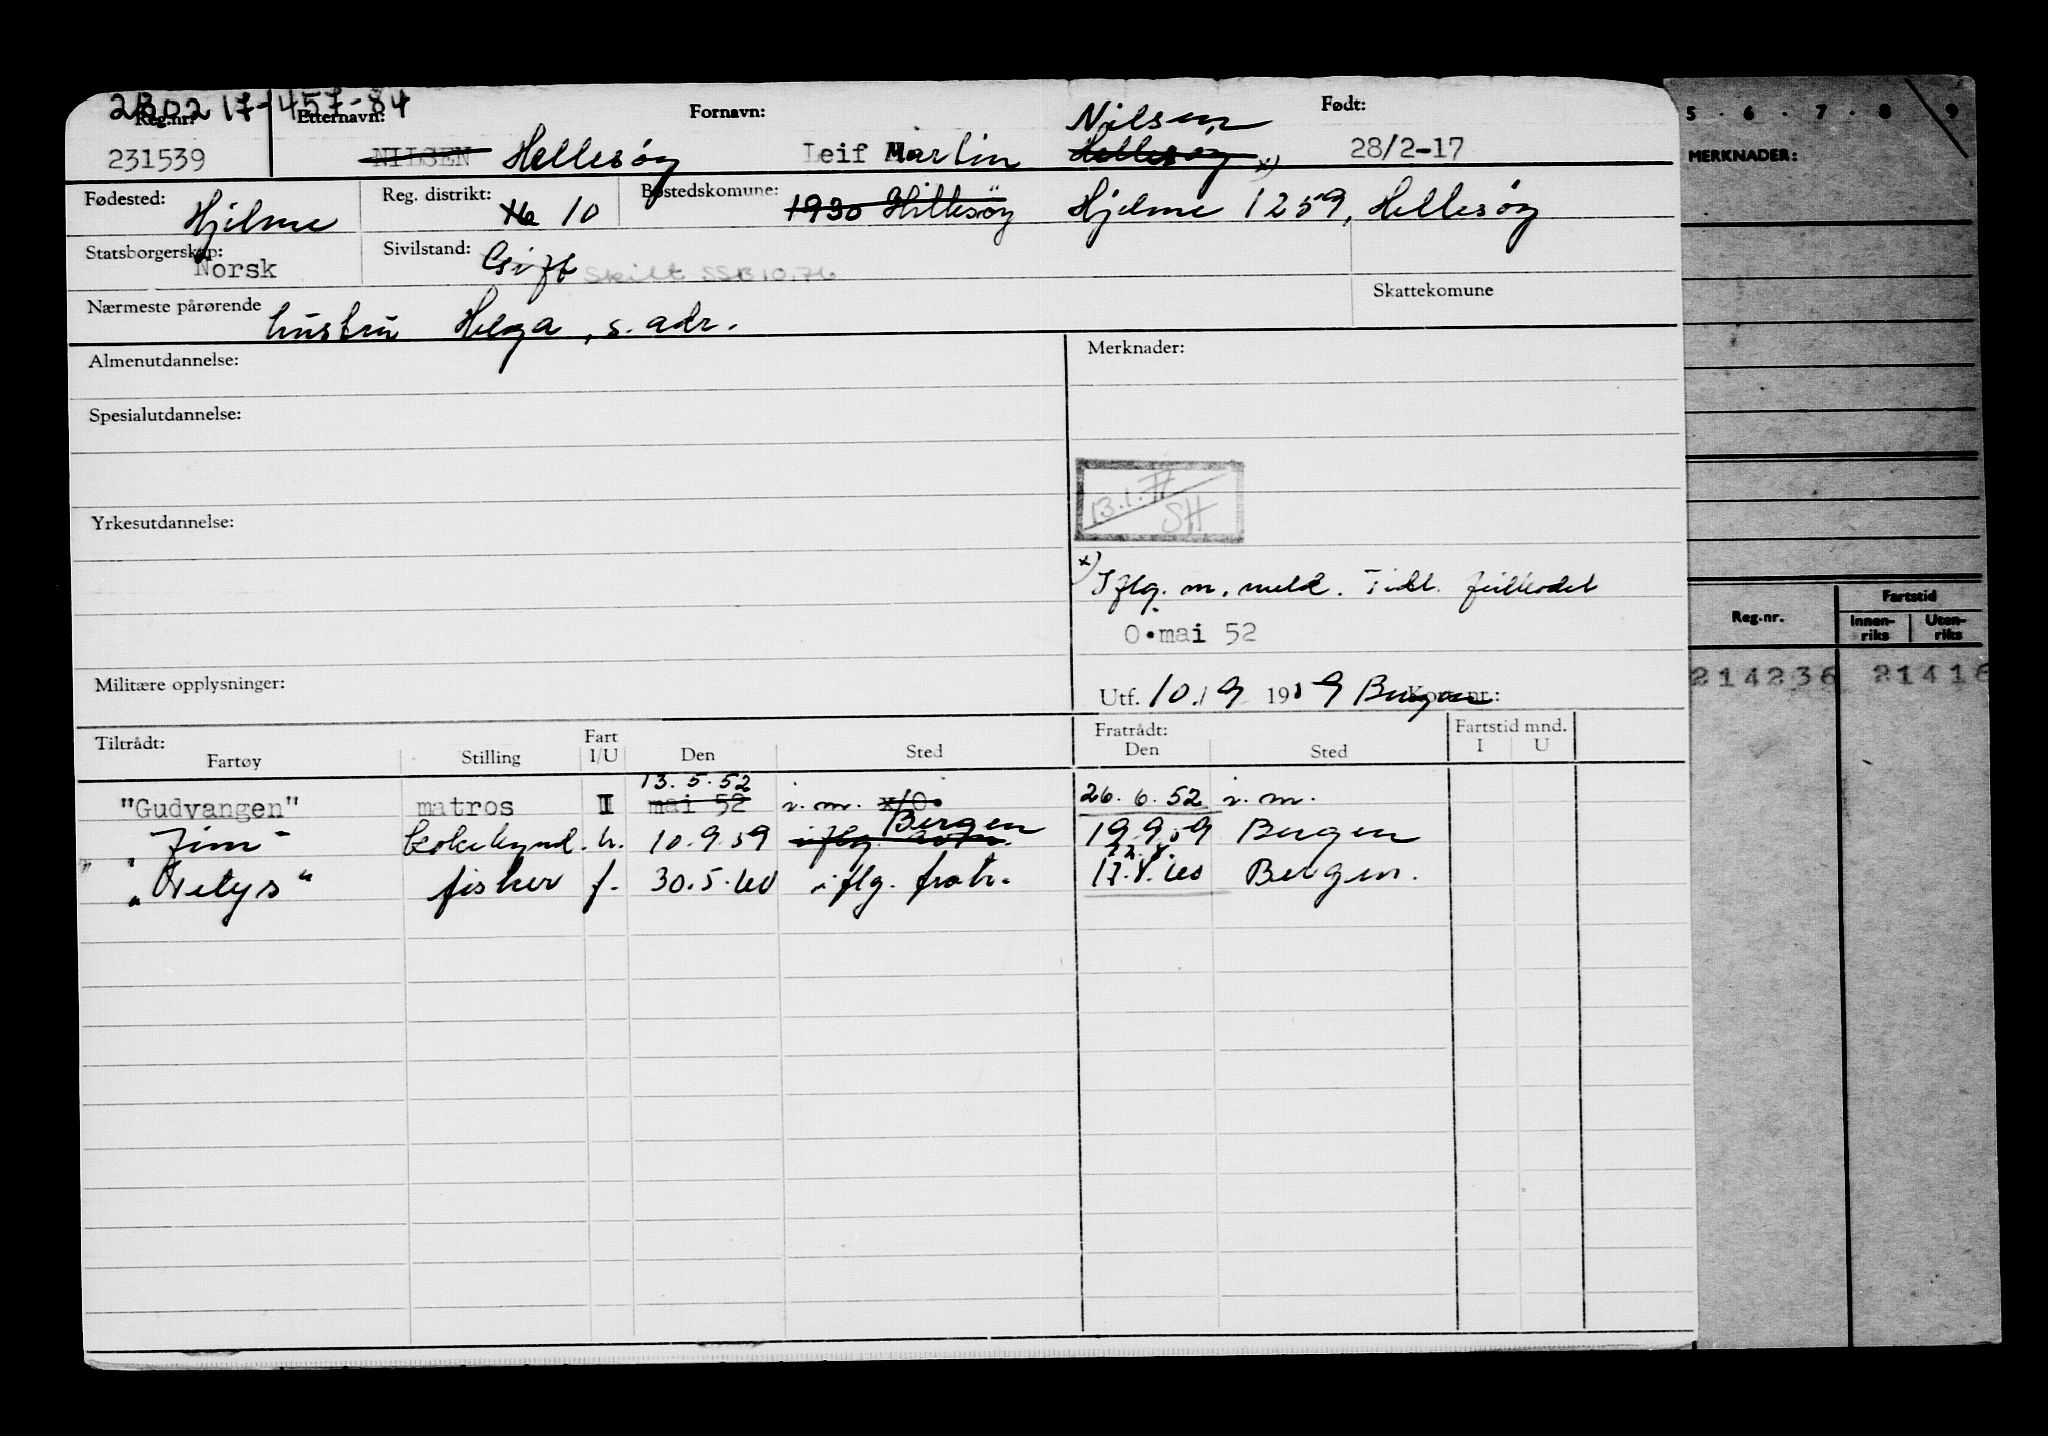 280217-457-84
Reg.nr. Etternavn: Fornavn: Født:
231539 NILSEN Hellesøy Leif Martin Hellesøy x) Nilsen 28/2-17
Fødested: Hjelme Reg. distrikt: 10 Bostedskomune: 1930 Hillesøy Hjelme 1259, Hellesøy
Statsborgerskap: Norsk Sivilstand: Gift Skilt SSB 10.76
Nærmeste pårørende hustru Helga, s. adr. Skattekomune
Almenutdannelse: Merknader:
Spesialutdannelse:
13.1.77 SH
Yrkesutdannelse:
x) Iflg. m. meld. Tidl. feilkodet
O.mai 52
Militære opplysninger: Utf. 10/9 1959 Bergen Kom.nr.:
Tiltrådt: Fratrådt: Fartstid mnd.
Fartøy Stilling Fart I/U Den Sted Den Sted I U
13.5.52
"Gudvangen" matros I mai 52 i.m. x/O. 26.6.52 i.m.
Bergen
"Jim" kokekynd. h. 10.9.59 19.9.59 Bergen
"Vetys" fisker f. 30.5.60 iflg. fratr. 17.8.60 Bergen.
5 . 6 . 7 . 8 . 9
MERKNADER:
Reg.nr. Fartstid
Innen-riks Uten-riks
214236 21416